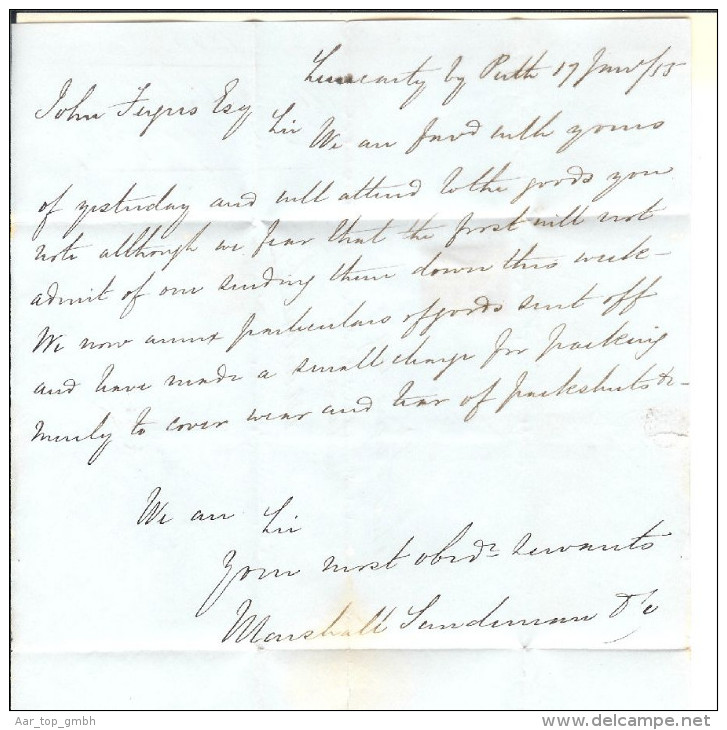 Luncarty by Perth 17 Janry/15
John Fergus Esq
Sir We are favd with yours
of yesterday and will attend to the goods you
note although we fear that the frost will not
admit of our sending them down this week –
We now annex particulars of goods sent off
and have made a small charge for packing
merely to cover wear and tear of packsheets &c –
We are Sir
Your most obedt servants
Marshall Sandeman & Co
Aar_top_gmbh
delcampe.net